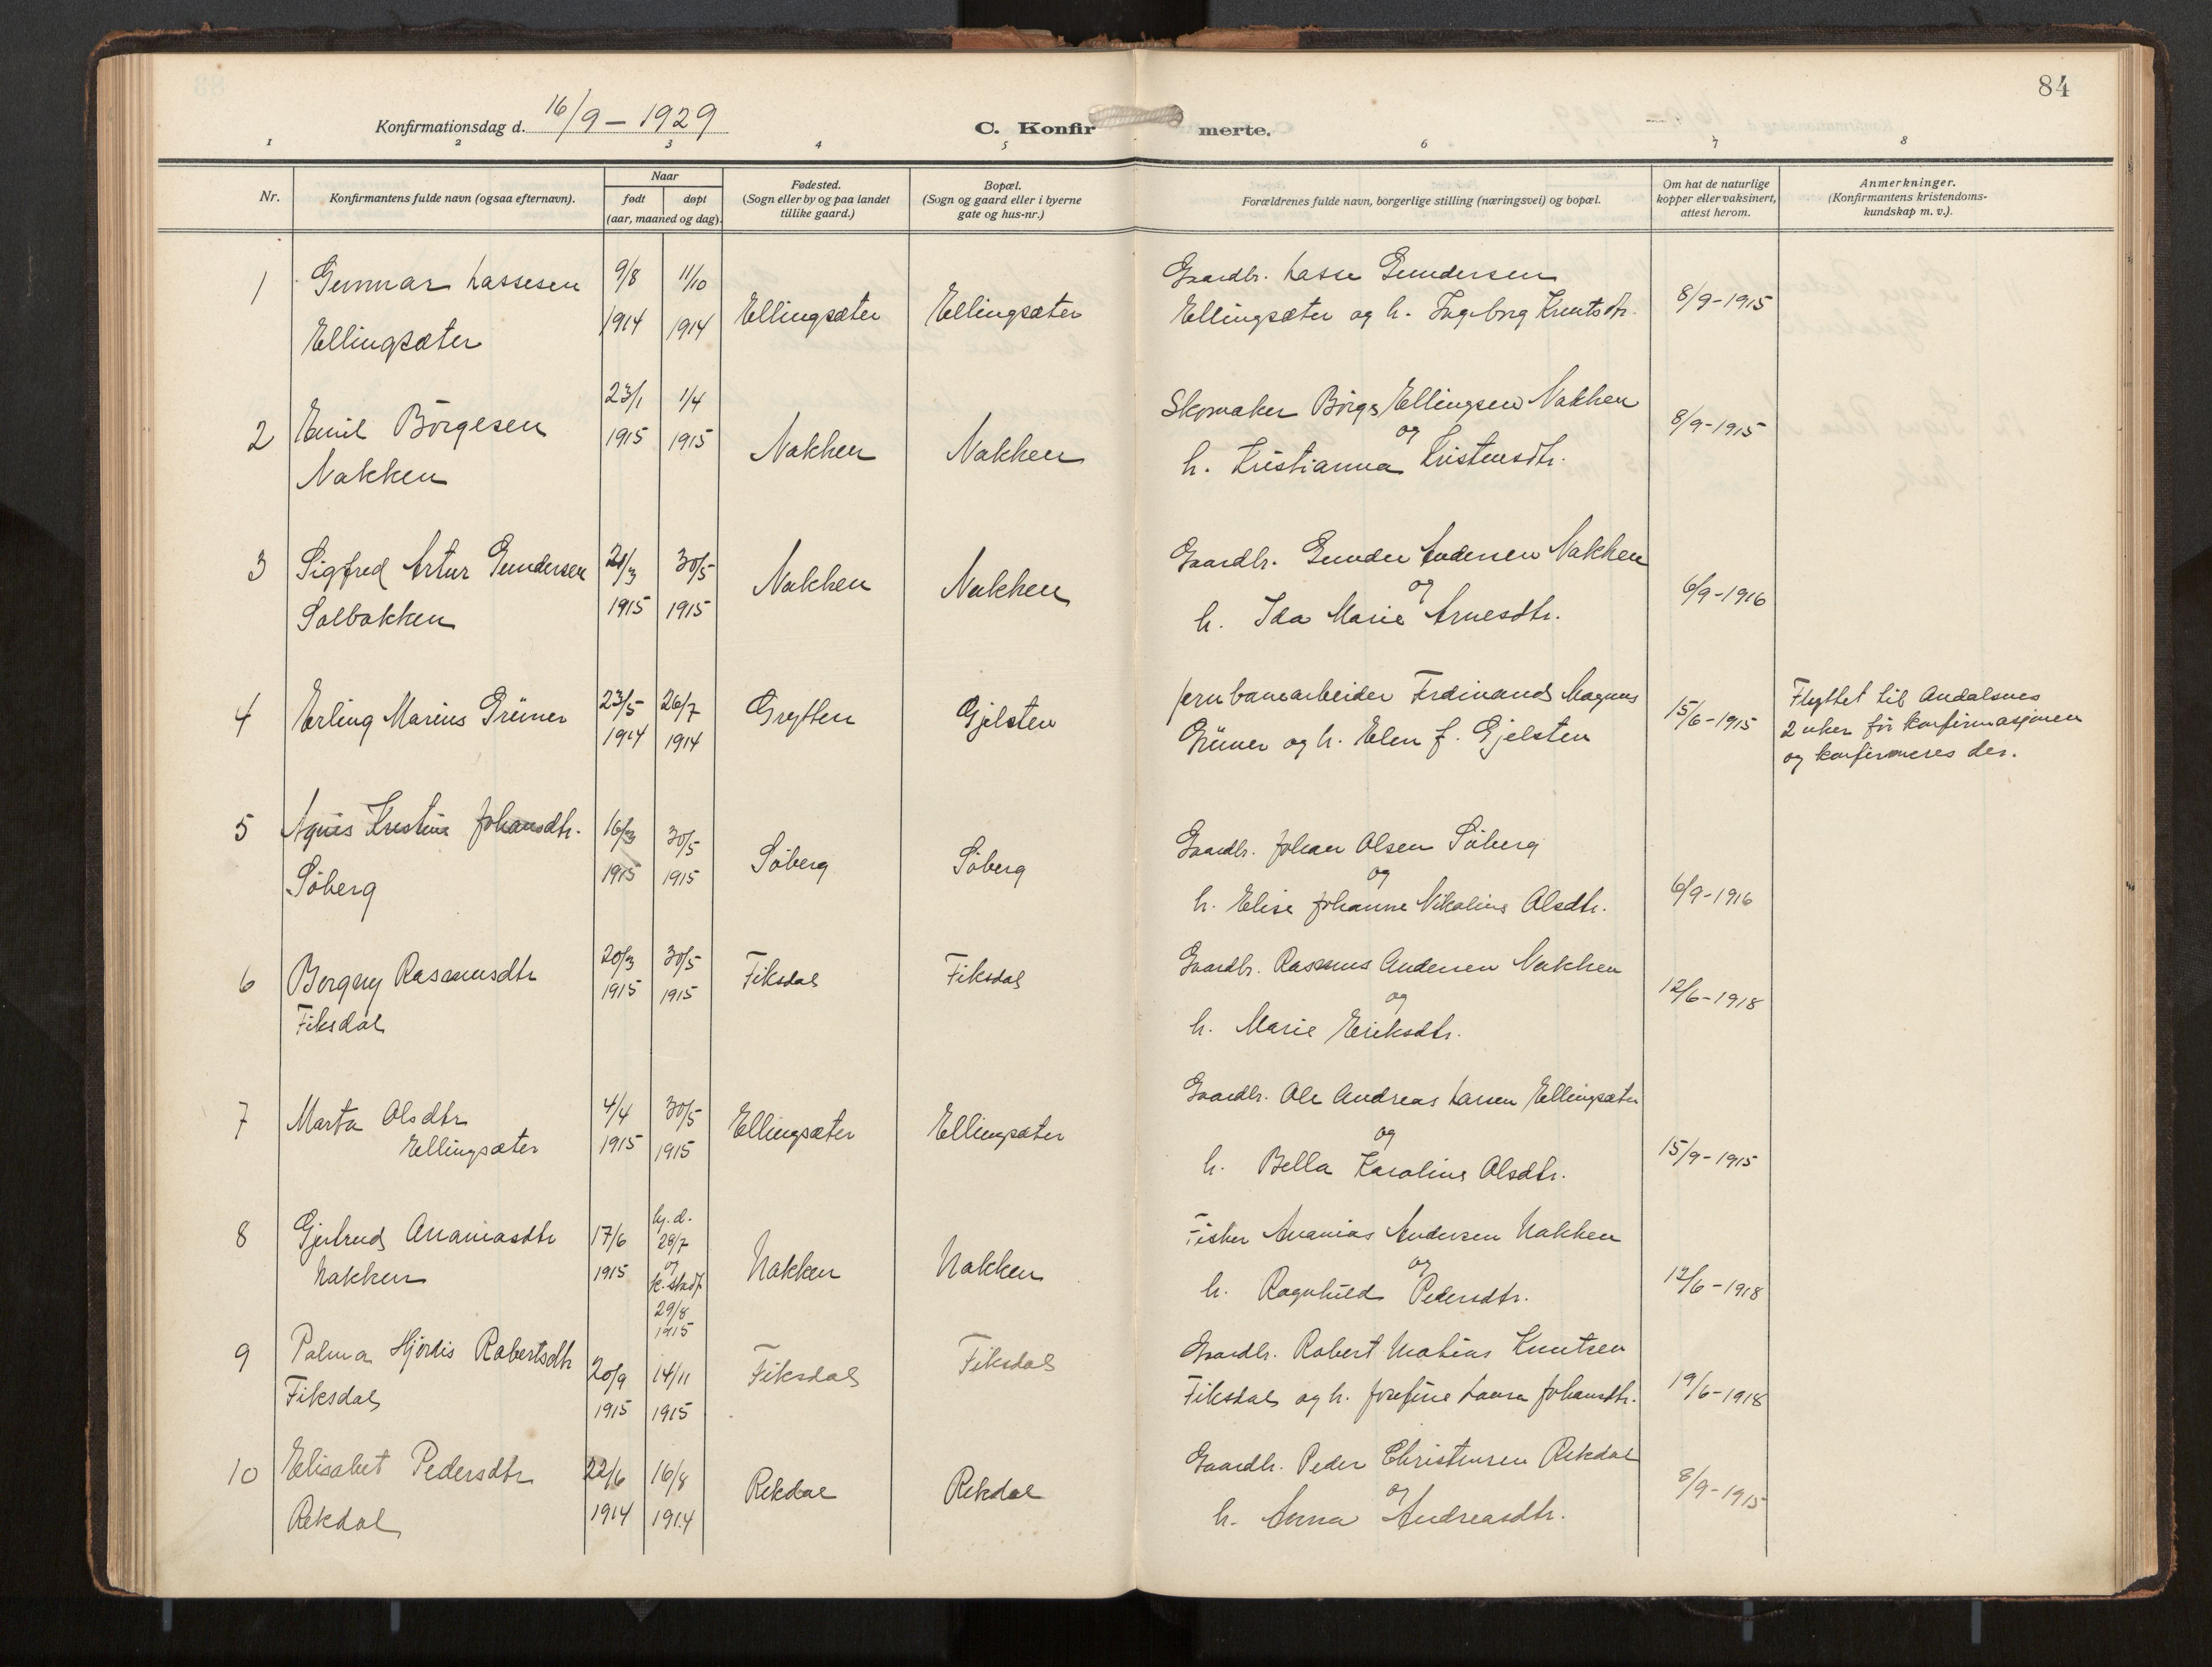 84
Konfirmationsdag d. 16/9 - 1929
C. Konfirmerte.
1 2 3 4 5 6 7 8
Nr.
Konfirmantens fulde navn (ogsaa efternavn).
Naar
født døpt
(aar, maaned og dag).
Fødested.
(Sogn eller by og paa landet
tillike gaard.)
Bopæl.
(Sogn og gaard eller i byerne
gate og hus-nr.)
Forældrenes fulde navn, borgerlige stilling (næringsvei) og bopæl.
Om hat de naturlige
kopper eller vaksinert,
attest herom.
Anmerkninger.
(Konfirmantens kristendoms-
kundskap m. v.).
1 Gunnar Lassesen 9/8 11/10 Gaardbr. Lasse Gundersen
Ellingsæter 1914 1914 Ellingsæter Ellingsæter Ellingsæter og h. Ingeborg Knutsdtr. 8/9-1915
2 Emil Börgesen 23/1 1/4 Skomaker Börge Ellingsen Nakken 8/9-1915
Nakken 1915 1915 Nakken Nakken og
h. Kristianna Kristensdtr.
3 Sigfred Artur Gundersen 21/3 30/5 Nakken Nakken Gaardbr. Gunder Andersen Nakken
Solbakken 1915 1915 og 6/9-1916
h. Ida Marie Arnesdtr.
4 Erling Marius Grüner 23/5 26/7 Grytten Gjelsten Jernbanearbeider Ferdinand Magnus 15/6-1915 Flyttet til Andalsnes
1914 1914 Grüner og h. Elen f. Gjelsten 2 uker för konfirmasjonen
og konfirmeres der.
5 Agnes Kristine Johansdtr. 16/3 30/5 Gaardbr. Johan Olsen Söberg
Söberg 1915 1915 Söberg Söberg og
h. Elise Johanne Nikoline Olsdtr. 6/9-1916
6 Borgny Rasmusdtr 20/3 30/5 Fiksdal Fiksdal Gaardbr. Rasmus Andersen Nakken
Fiksdal 1915 1915 og 12/6-1918
h. Marie Eriksdtr.
7 Marta Olsdtr 4/4 30/5 Gaardbr. Ole Andreas Larsen Ellingsæter
Ellingsæter 1915 1915 Ellingsæter Ellingsæter og 15/9-1915
h. Bella Karoline Olsdtr.
8 Gjertrud Ananiasdtr 17/6 hj.d. Fisker Ananias Andersen Nakken
Nakken 1915 28/7 Nakken Nakken og
og
k. stadf. h. Ragnhild Pedersdtr. 12/6-1918
29/8
1915
9 Palma Hjördis Robertsdtr 20/9 14/11 Fiksdal Fiksdal Gaardbr. Robert Matias Knutsen
Fiksdal 1915 1915 Fiksdal og h. Josefine Laura Johansdtr. 19/6-1918
10 Elisabet Pedersdtr 22/6 16/8 Rekdal Rekdal Gaardbr. Peder Christensen Rekdal
Rekdal 1914 1914 og 8/9-1915
h. Anna Andreasdtr.